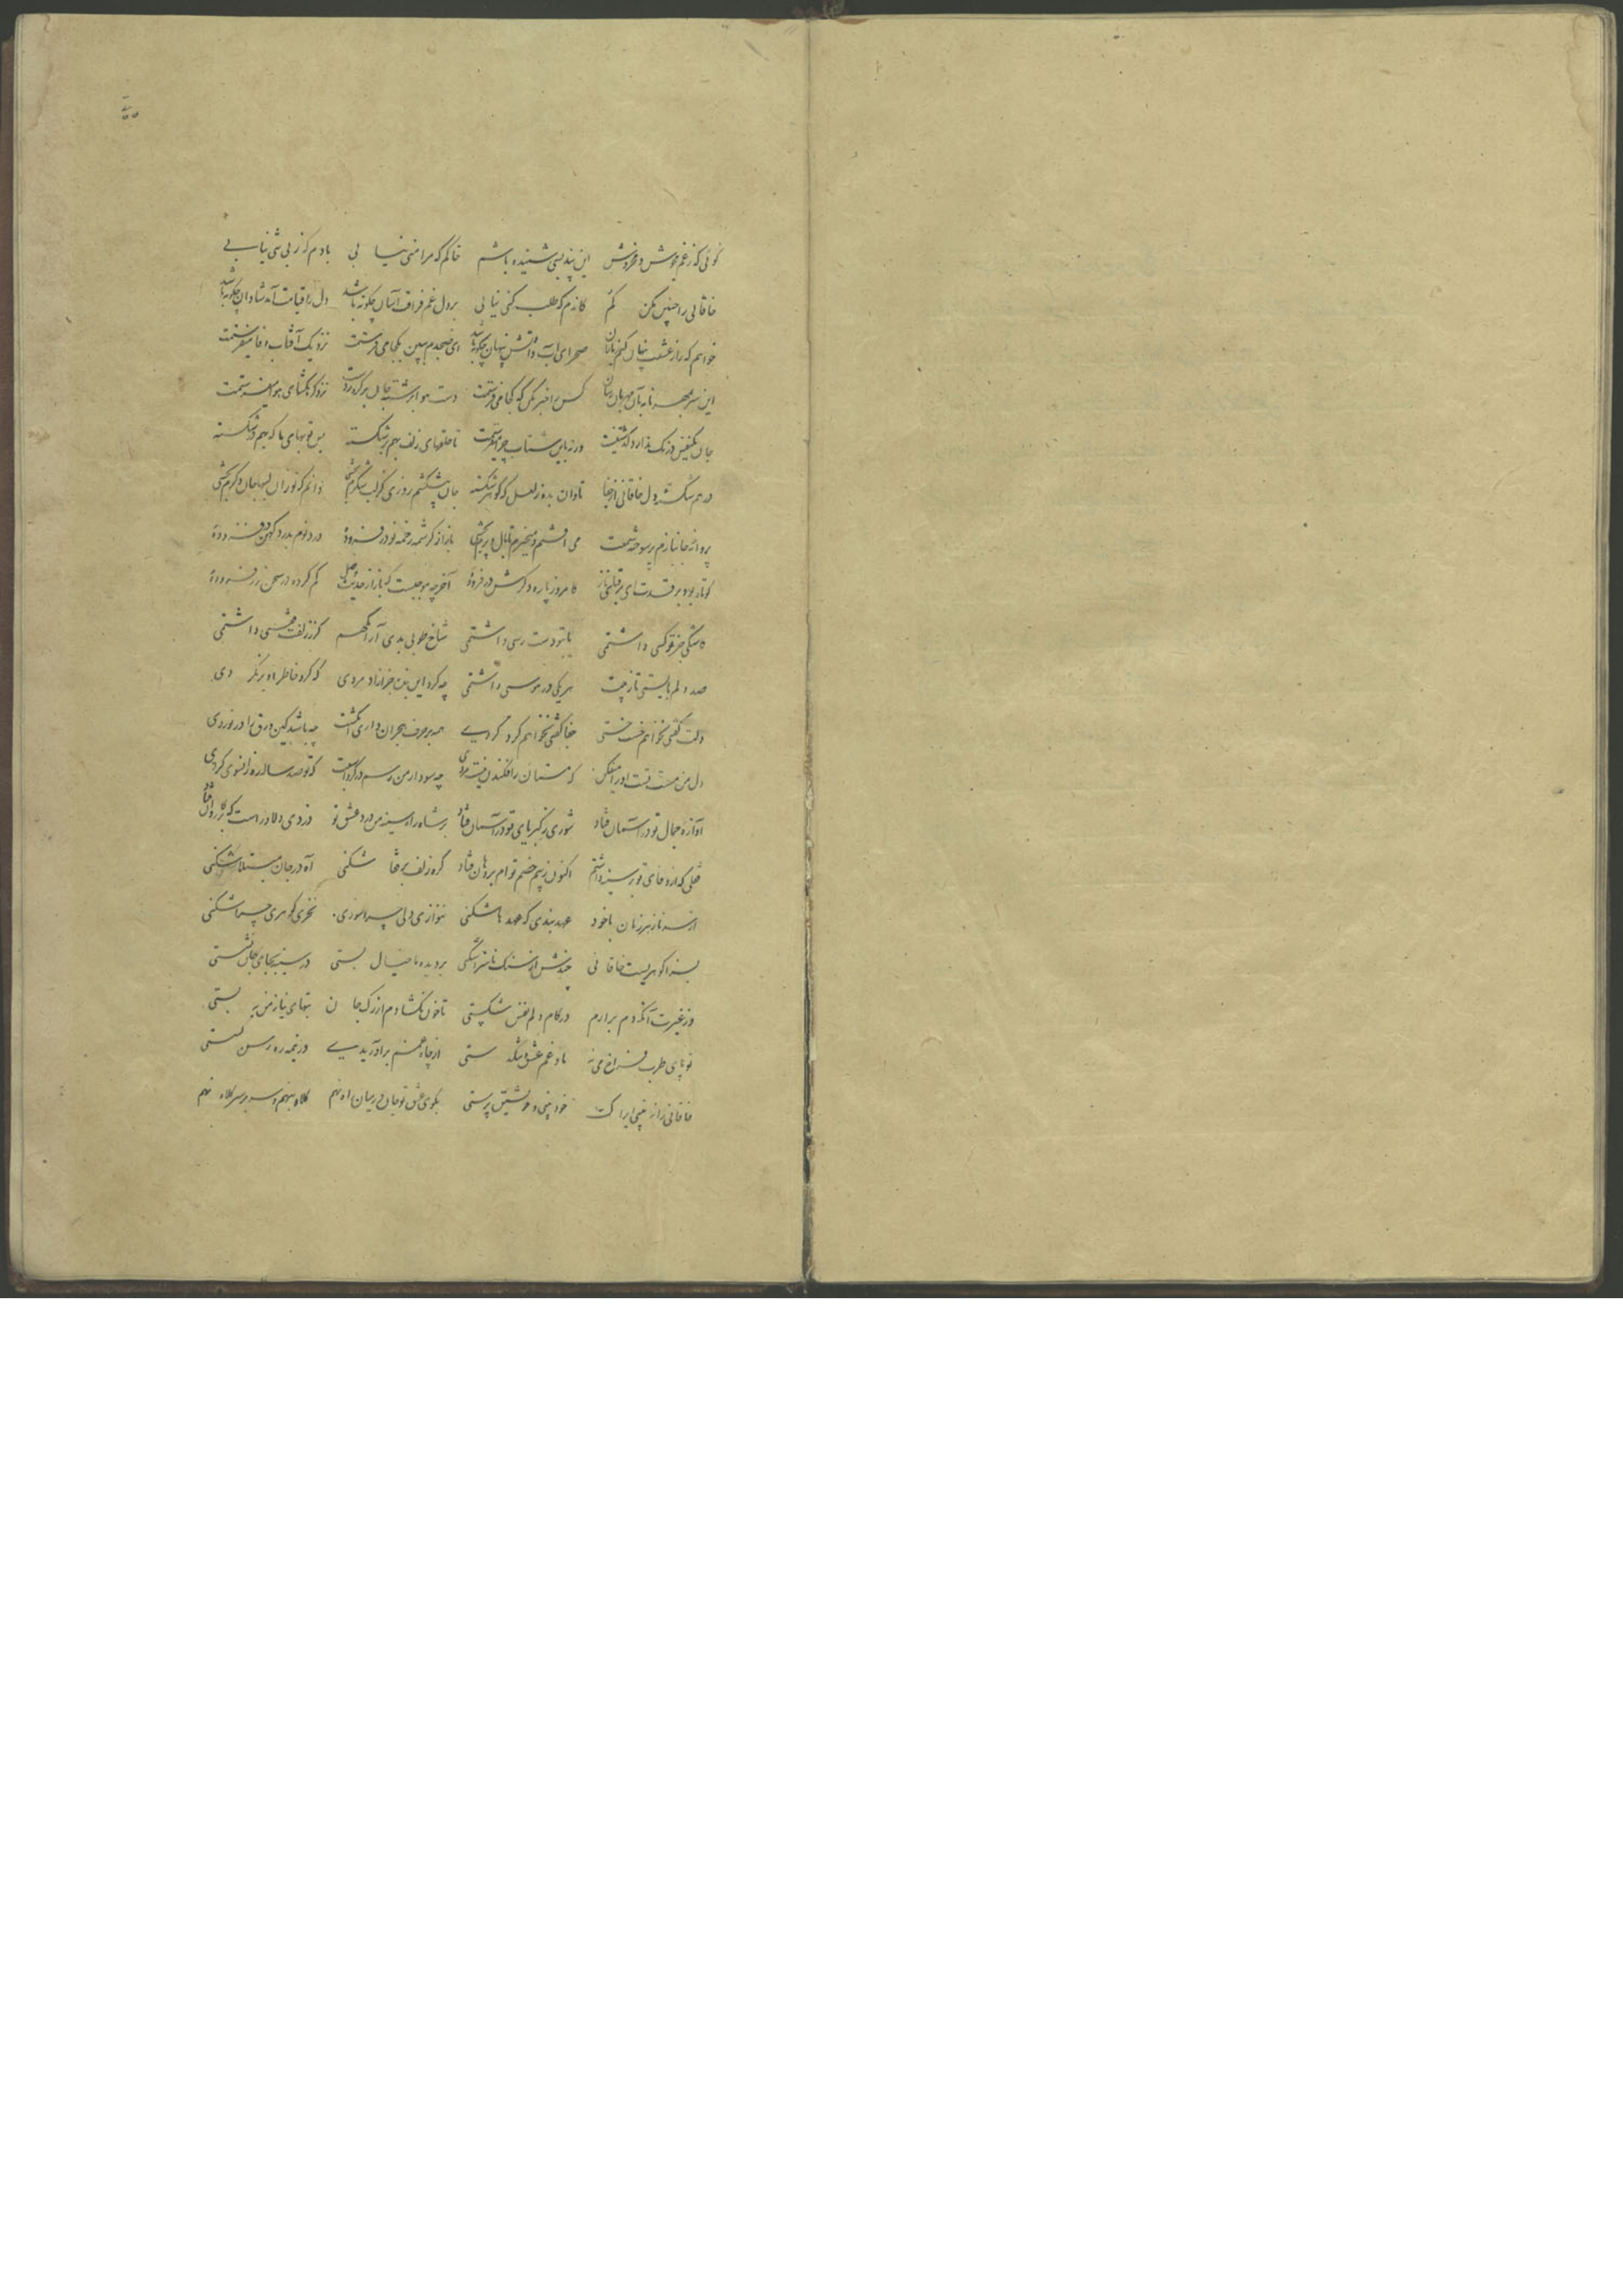 گوئی که زغم مجوش و مخروش این پند بسی شنیده باشم خاکم که مرا منی نیا بی بادم که ز بی شی نیابی
خاقانی را چنین مکن گم کازم که طلب کنی نیابی بر دل غم فراقت آسان چگونه باشد دل را قیامت آمد شادان چگونه باشد
خواهم که راز عشقت پنهان کنم ز یاران صحرای آب و آتش پنهان چگونه باشد ای صبحدم ببین بکجا میفرستمت نزدیک آفتاب وفا میفرستمت
این سر بمهر نامه بآن مهربان رسان کس را خبر مکن که کجا میفرستمت دست هوا برشته جان بر گره زدست نزد گره گشای هوا میفرستمت
جان یکنفس درنگ ندارد گذشتنیست ورنه باین شتاب چرا میفرستمت تا حلقهای زلف بهم برشکسته بس توبهای ما که بهم درشکسته
درهم شکسته دل خاقانی از جفا تاوان بده ز لعل که گوهر شکسته جان پیشکشم روزی کز لب شکرم بخشی دانم که تو زان لبها جان دگرم بخشی
پروانه جانبازم پر سوخته شمعت می افتم و میخیزم تا بال و پرم بخشی باز از کرشمه زخمه نو در فزوده درد نوم بدرد کهن در فزوده
کوتاه بود بر قدت ای قبای ناز کامروز پاره دگرش در فزوده آخر چه موجبست که باز از حدیث وصل کم کرده در سخن زر فزوده
کاشکی جز تو کسی داشتمی یا بتو دست رسی داشتمی شاخ طوبی بدی آرامگهم گر ز زلفت قفسی داشتمی
صد دلم بایستی تا ز پیت هر یکی در هوسی داشتمی چه کرد این بنده جز آزاد مردی که گرد خاطر او بر نگر دی
دلت گفتی نخواهم خست خستی جفا گفتی نخواهم کرد کردی همه بر حرف هجران داری انگشت چه باشد کین ورق را در نوردی
دل من مست تست او را میفکن که مستان را فکندن نیست مردی چه سود ار من رسم در گرد اسبت که تو صد ساله ره زانسوی گردی
آوازه جمال تو در آسمان فتاد شوری ز کبریای تو در آسمان فتاد بر شاه راه سینه من درد عشق تو دزدی دلاور است که بر کاروان فتاد
قفلی که از وفای تو بر سینه داشتم اکنون ز بیم خصم توام بر دهان فتاد گره زلف بر قفا شکنی آه در جان مبتلا شکنی
از سر ناز هر زمان با خود عهد بندی که عهد ما شکنی ننوازی دلی چرا سوزی نخری گوهری چرا شکنی
بسته گوهریست خاقانی چندش از سنگ ناسزا شکنی بر دیده ما خیال بستی در سینه بجای جان نشستی
وز غیرت آنکه دم برارم در کام دلم نفس شکستی تا خون نگشادم از رگ جان تبهای نیاز من نه بستی
تو پای طرب فراخ می نه ما و غم عشق و تنگدستی از چاه غمم برآوریدی در نیمه ره رسن گسستی
خاقانی را از بینی ایراک خود بینی و خویشتن پرستی بکوی عشق تو جان در میان راه نهم کلاه بنهم و سر بر سر کلاه نهم